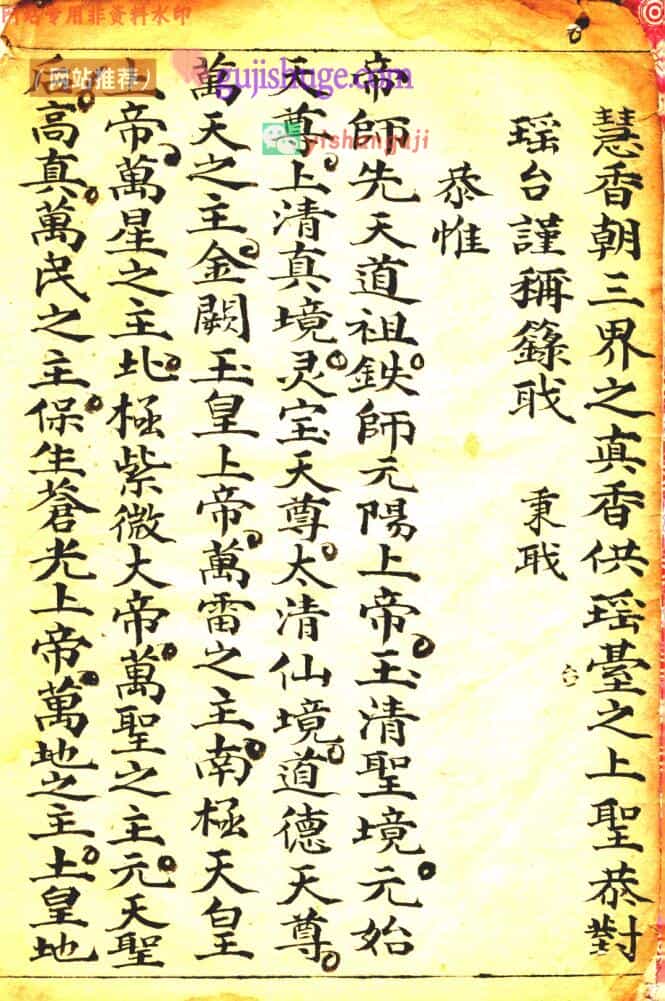 网站专用非资料水印
网站推荐
gujishuge.com
yishunguji
慧香朝三界之真香供瑶臺之上聖恭對
瑶台謹稱籙戢 秉戢
恭惟
帝師先天道祖鉄師元陽上帝玉清聖境元始
天尊上清真境灵宝天尊太清仙境道德天尊
萬天之主金闕玉皇上帝萬雷之主南極天皇
上帝萬星之主北極紫微大帝萬聖之主元天聖
后高真萬民之主保生蒼光上帝萬地之主土皇地